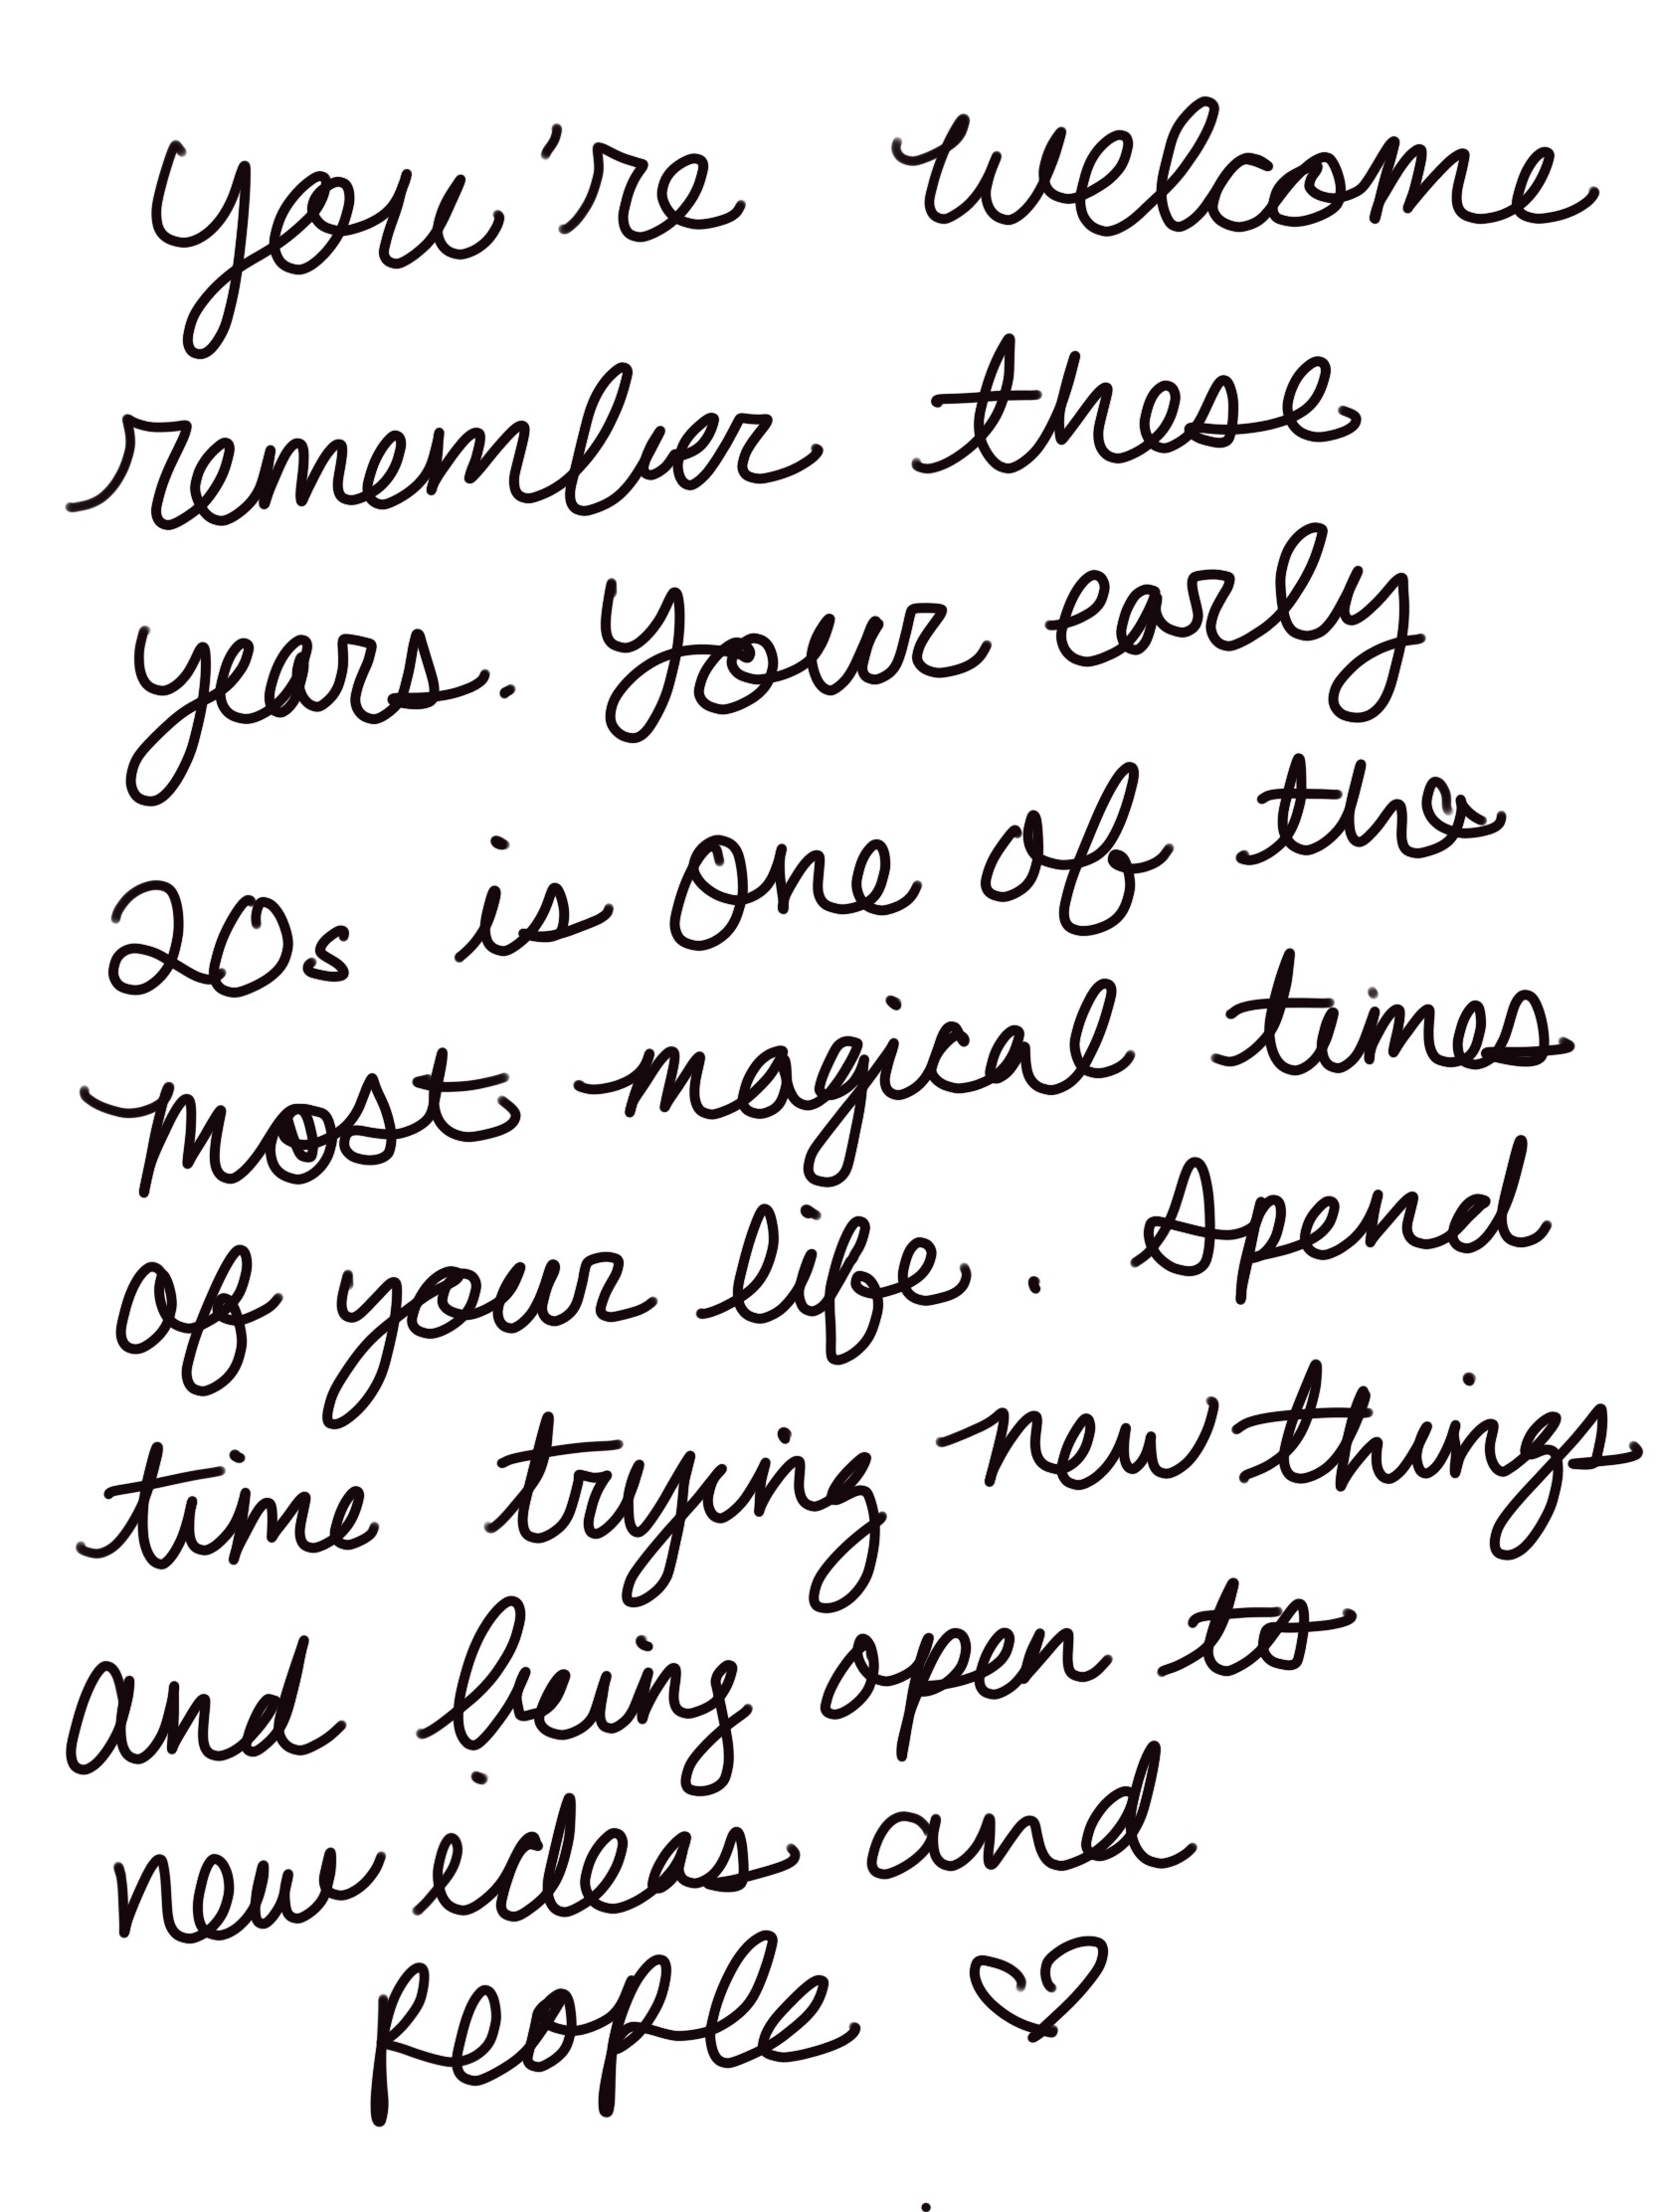 you're welcome
remember these
years. Your early
20s is one of the
most magical times
of your life. Spend
time trying new things
and being open to
new ideas and
people ♡